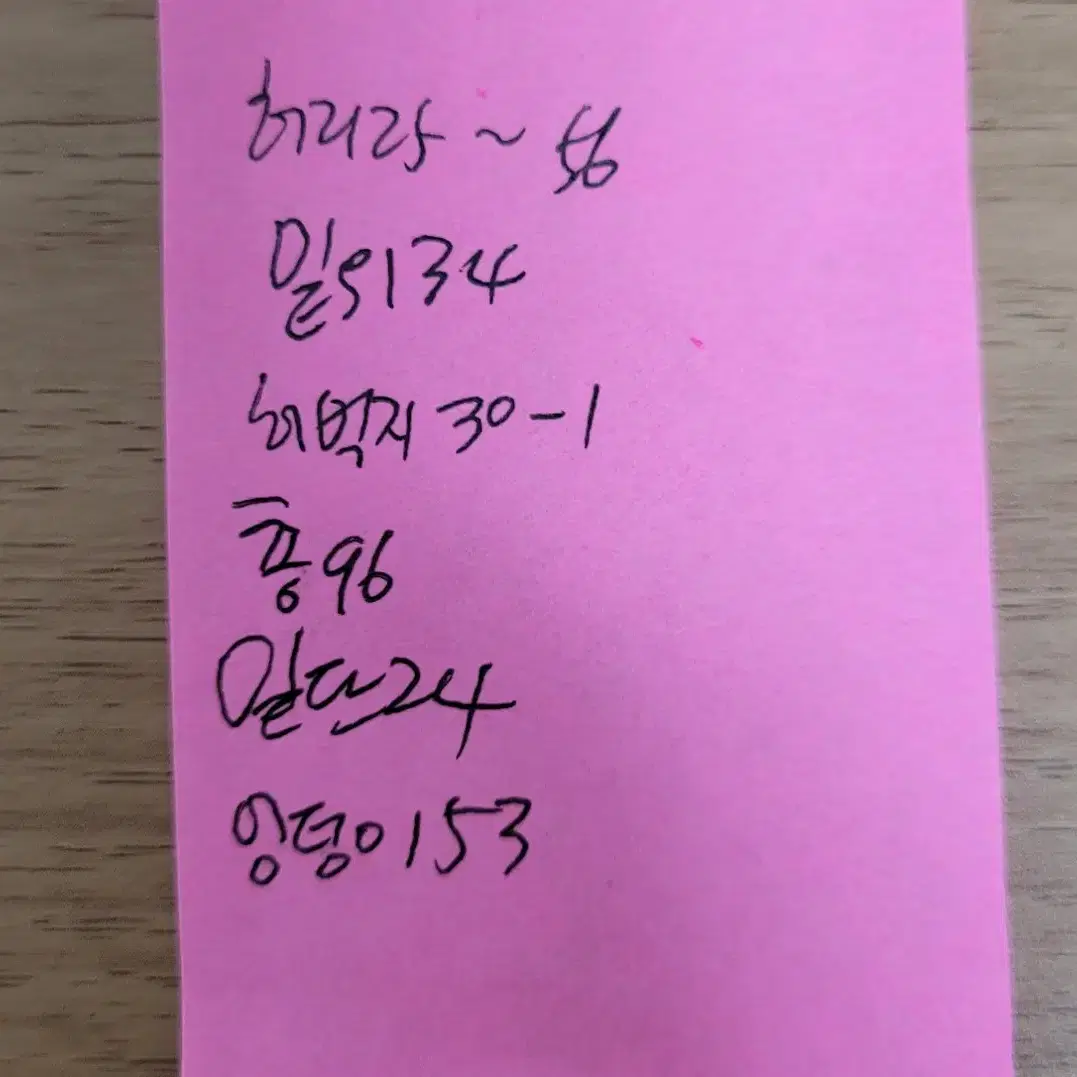 허리라~56
밑위34
허벅지30-1
총96
밑단24
엉덩이53